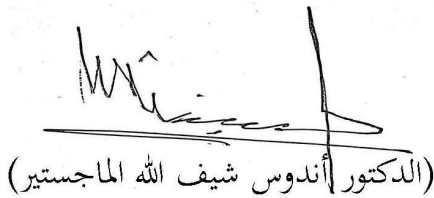 (الدكتور أندوس شيف الله الماجستير)